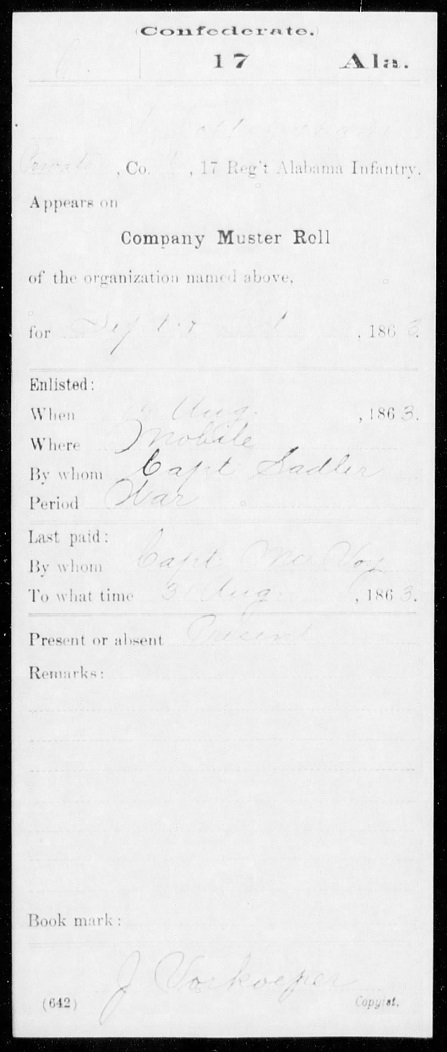 (Confederate.)
17 Ala.
Private, Co. , 17 Reg't Alabama Infantry.
Appears on
Company Muster Roll
of the organization named above,
for , 186
Enlisted:
When Aug, 1863.
Where Mobile
By whom Capt Sadler
Period War
Last paid:
By whom Capt
To what time 31 Aug, 1863.
Present or absent Present
Remarks:
Book mark:
J
(642) Copyist.